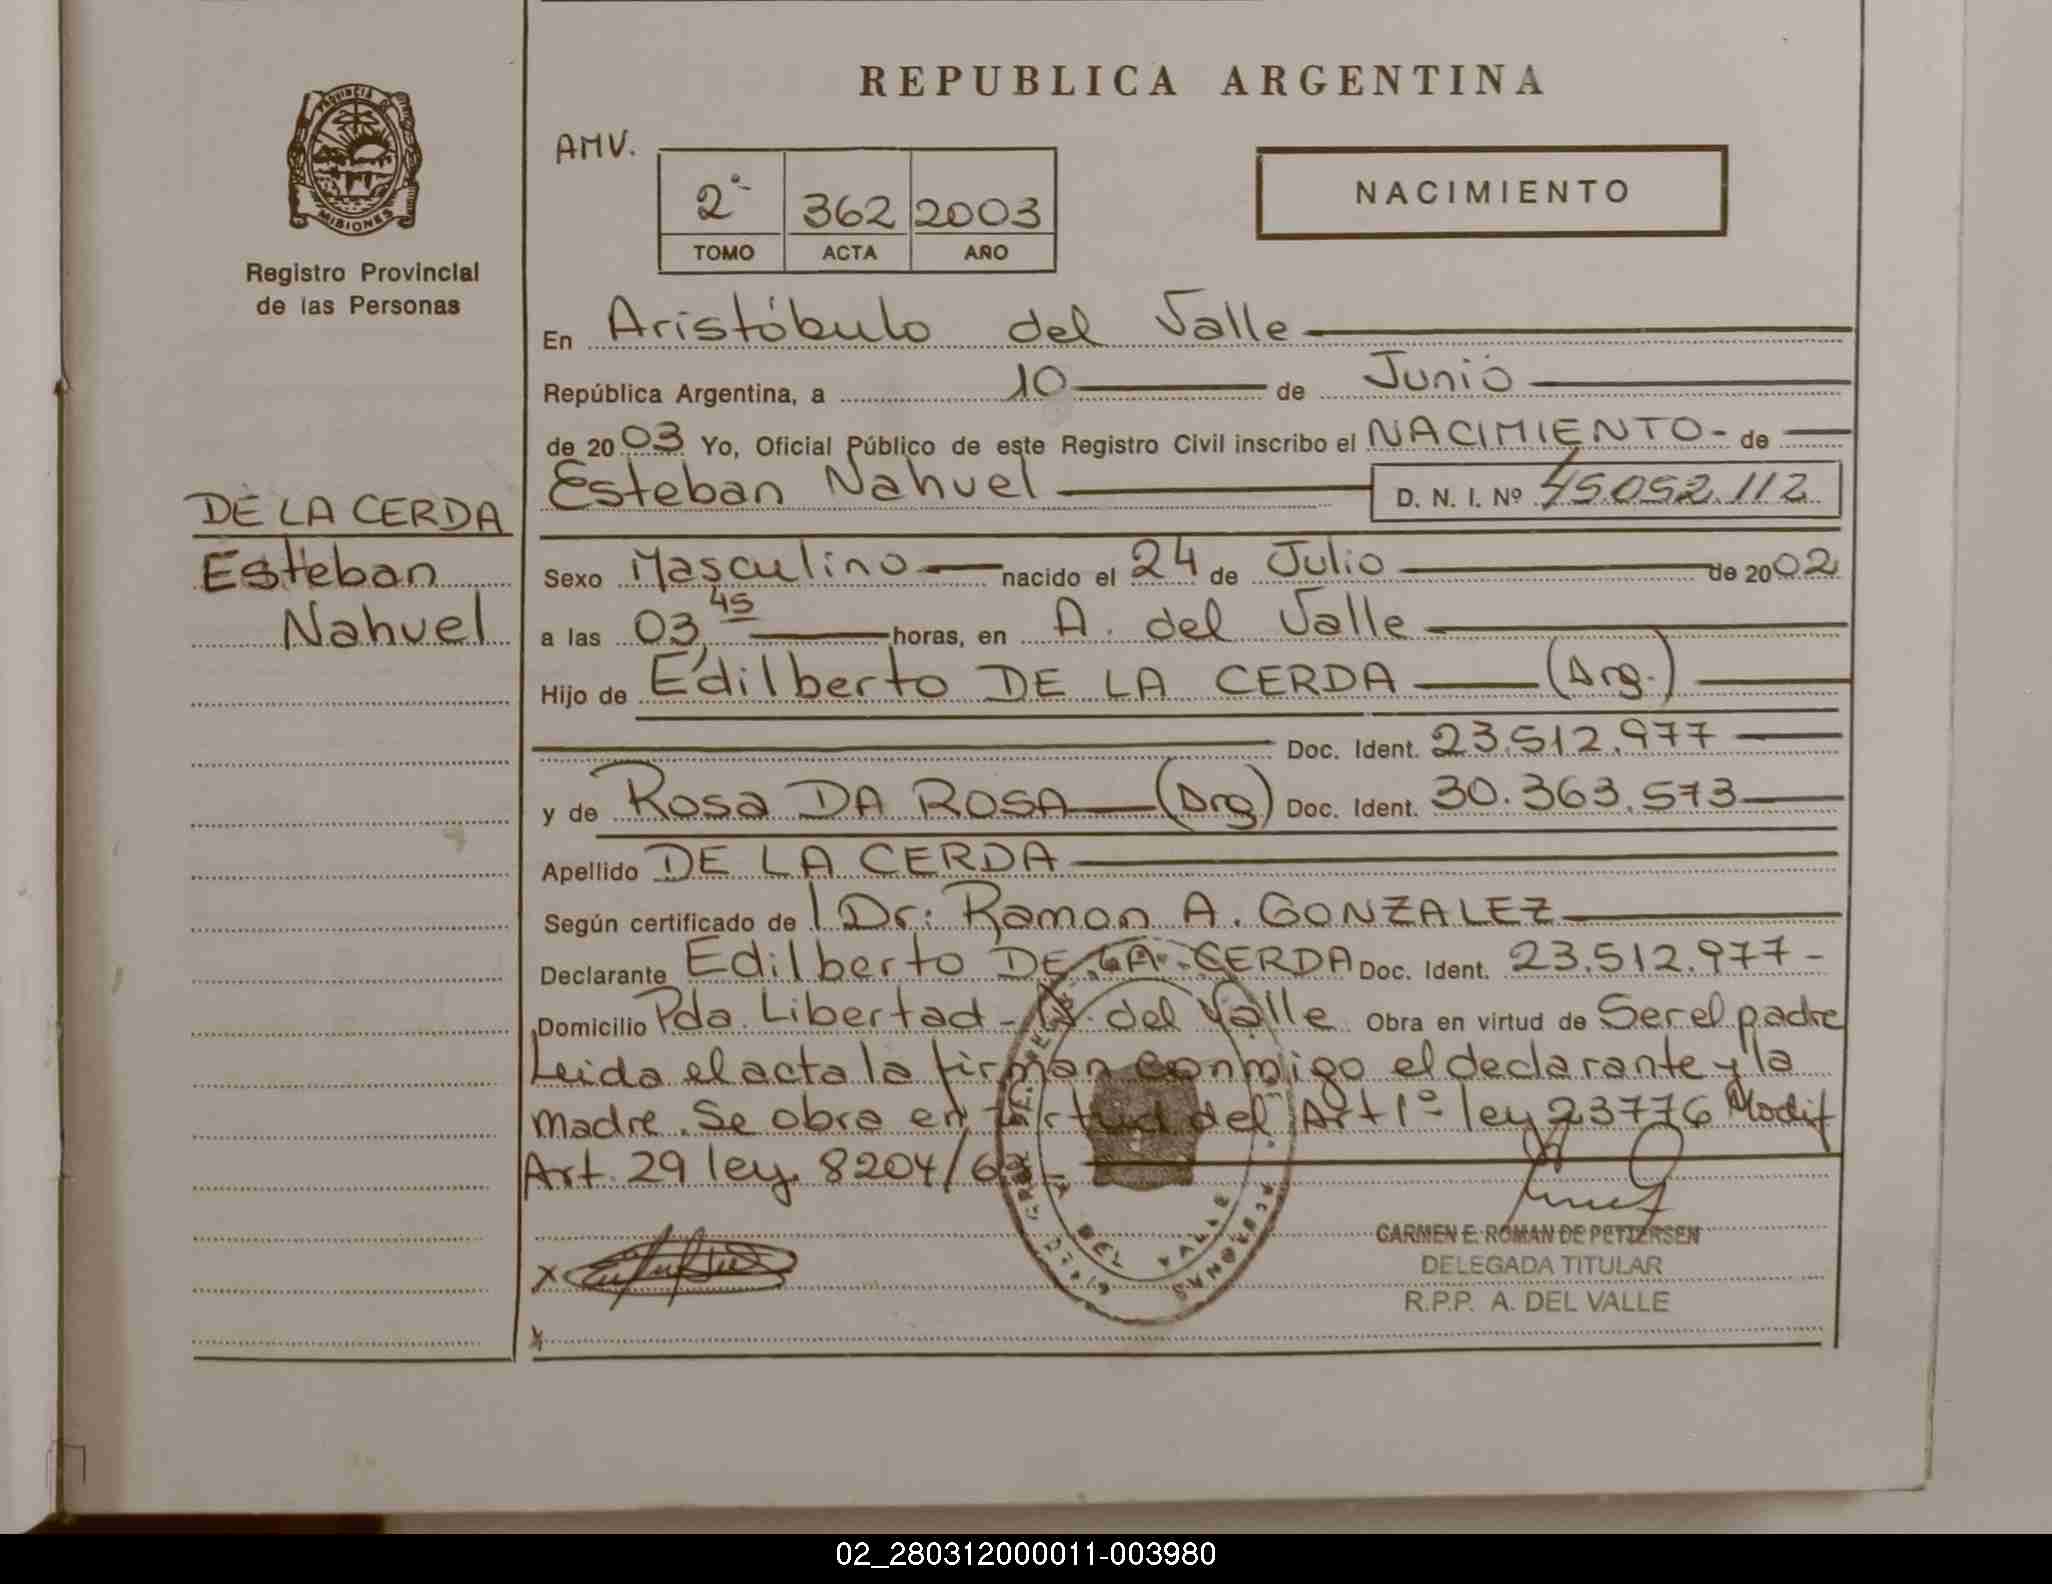 PROVINCIA DE
MISIONES
Registro Provincial
de las Personas
DE LA CERDA
Esteban
Nahuel
REPUBLICA ARGENTINA
AMV.
2º 362 2003
TOMO ACTA AÑO
NACIMIENTO
En Aristóbulo del Valle
República Argentina, a 10 de Junio
de 2003 Yo, Oficial Público de este Registro Civil inscribo el NACIMIENTO - de
Esteban Nahuel D. N. I. Nº 45.052.112
Sexo Masculino nacido el 24 de Julio de 2002
a las 03,45 horas, en A. del Valle
Hijo de Edilberto DE LA CERDA (Arg.)
Doc. Ident. 23.512.977
y de Rosa DA ROSA (Arg) Doc. Ident. 30.363.573
Apellido DE LA CERDA
Según certificado de Dr: Ramon A. GONZALEZ
Declarante Edilberto DE LA CERDA Doc. Ident. 23.512.977-
Domicilio Pda. Libertad - A. del Valle Obra en virtud de Ser el padre
Leida el acta la firman conmigo el declarante y la
madre. Se obra en virtud del Art 1º ley 23776 Modif
Art. 29 ley 8204/63 -
x
CARMEN E. ROMAN DE PETTERSEN
DELEGADA TITULAR
R.P.P. A. DEL VALLE
x
DEL VALLE
02_280312000011-003980